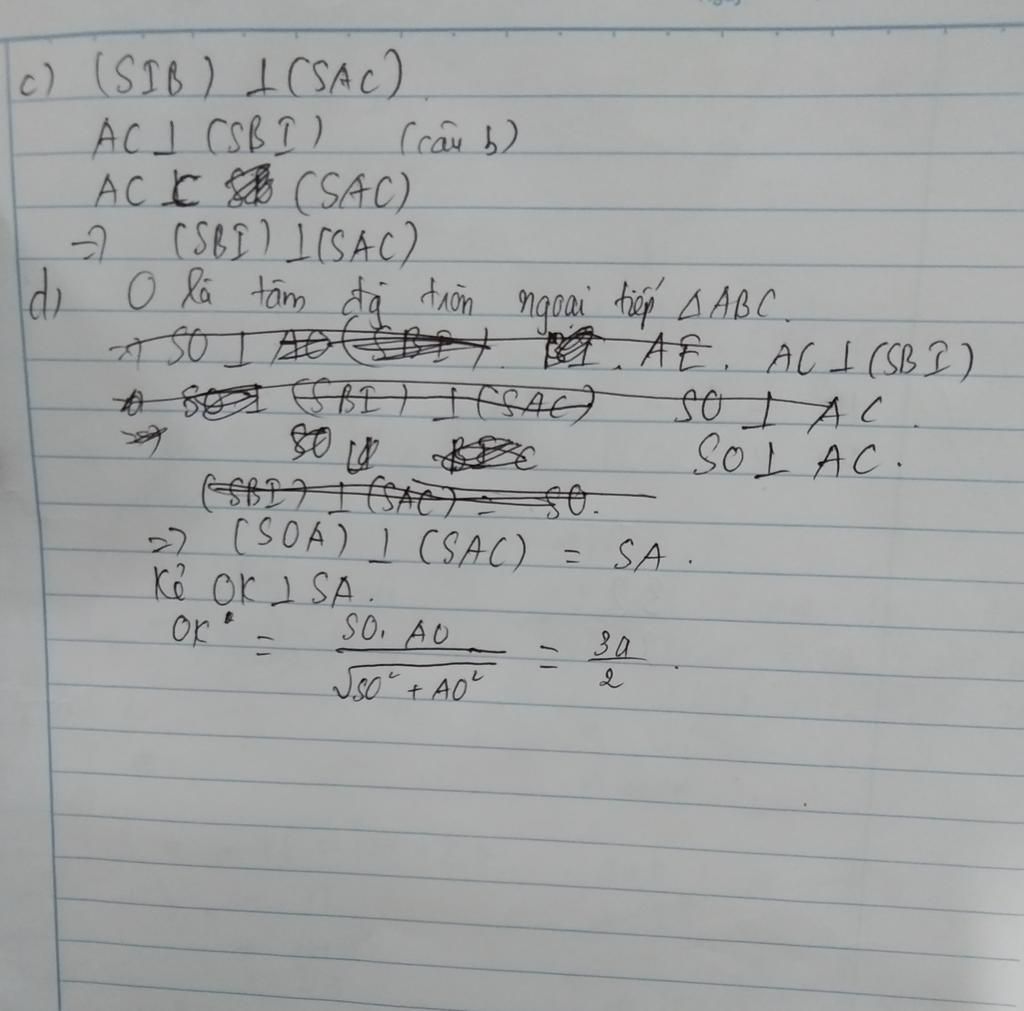 c) (SIB) ⊥ (SAC).
AC ⊥ (SBI) (câu b)
AC ⊂ (SAC)
=> (SBI) ⊥ (SAC)
d) O là tâm đg tròn ngoại tiếp ΔABC.
=> SO ⊥ AO (SBI). AE. AC ⊥ (SBI)
(SBI) ⊥ (SAC) SO ⊥ AC.
SO SO ⊥ AC.
(SBI) ⊥ (SAC) = SO.
=> (SOA) ⊥ (SAC) = SA.
Kẻ OK ⊥ SA.
OK = \frac{SO. AO}{\sqrt{SO² + AO²}} = \frac{3a}{2}.